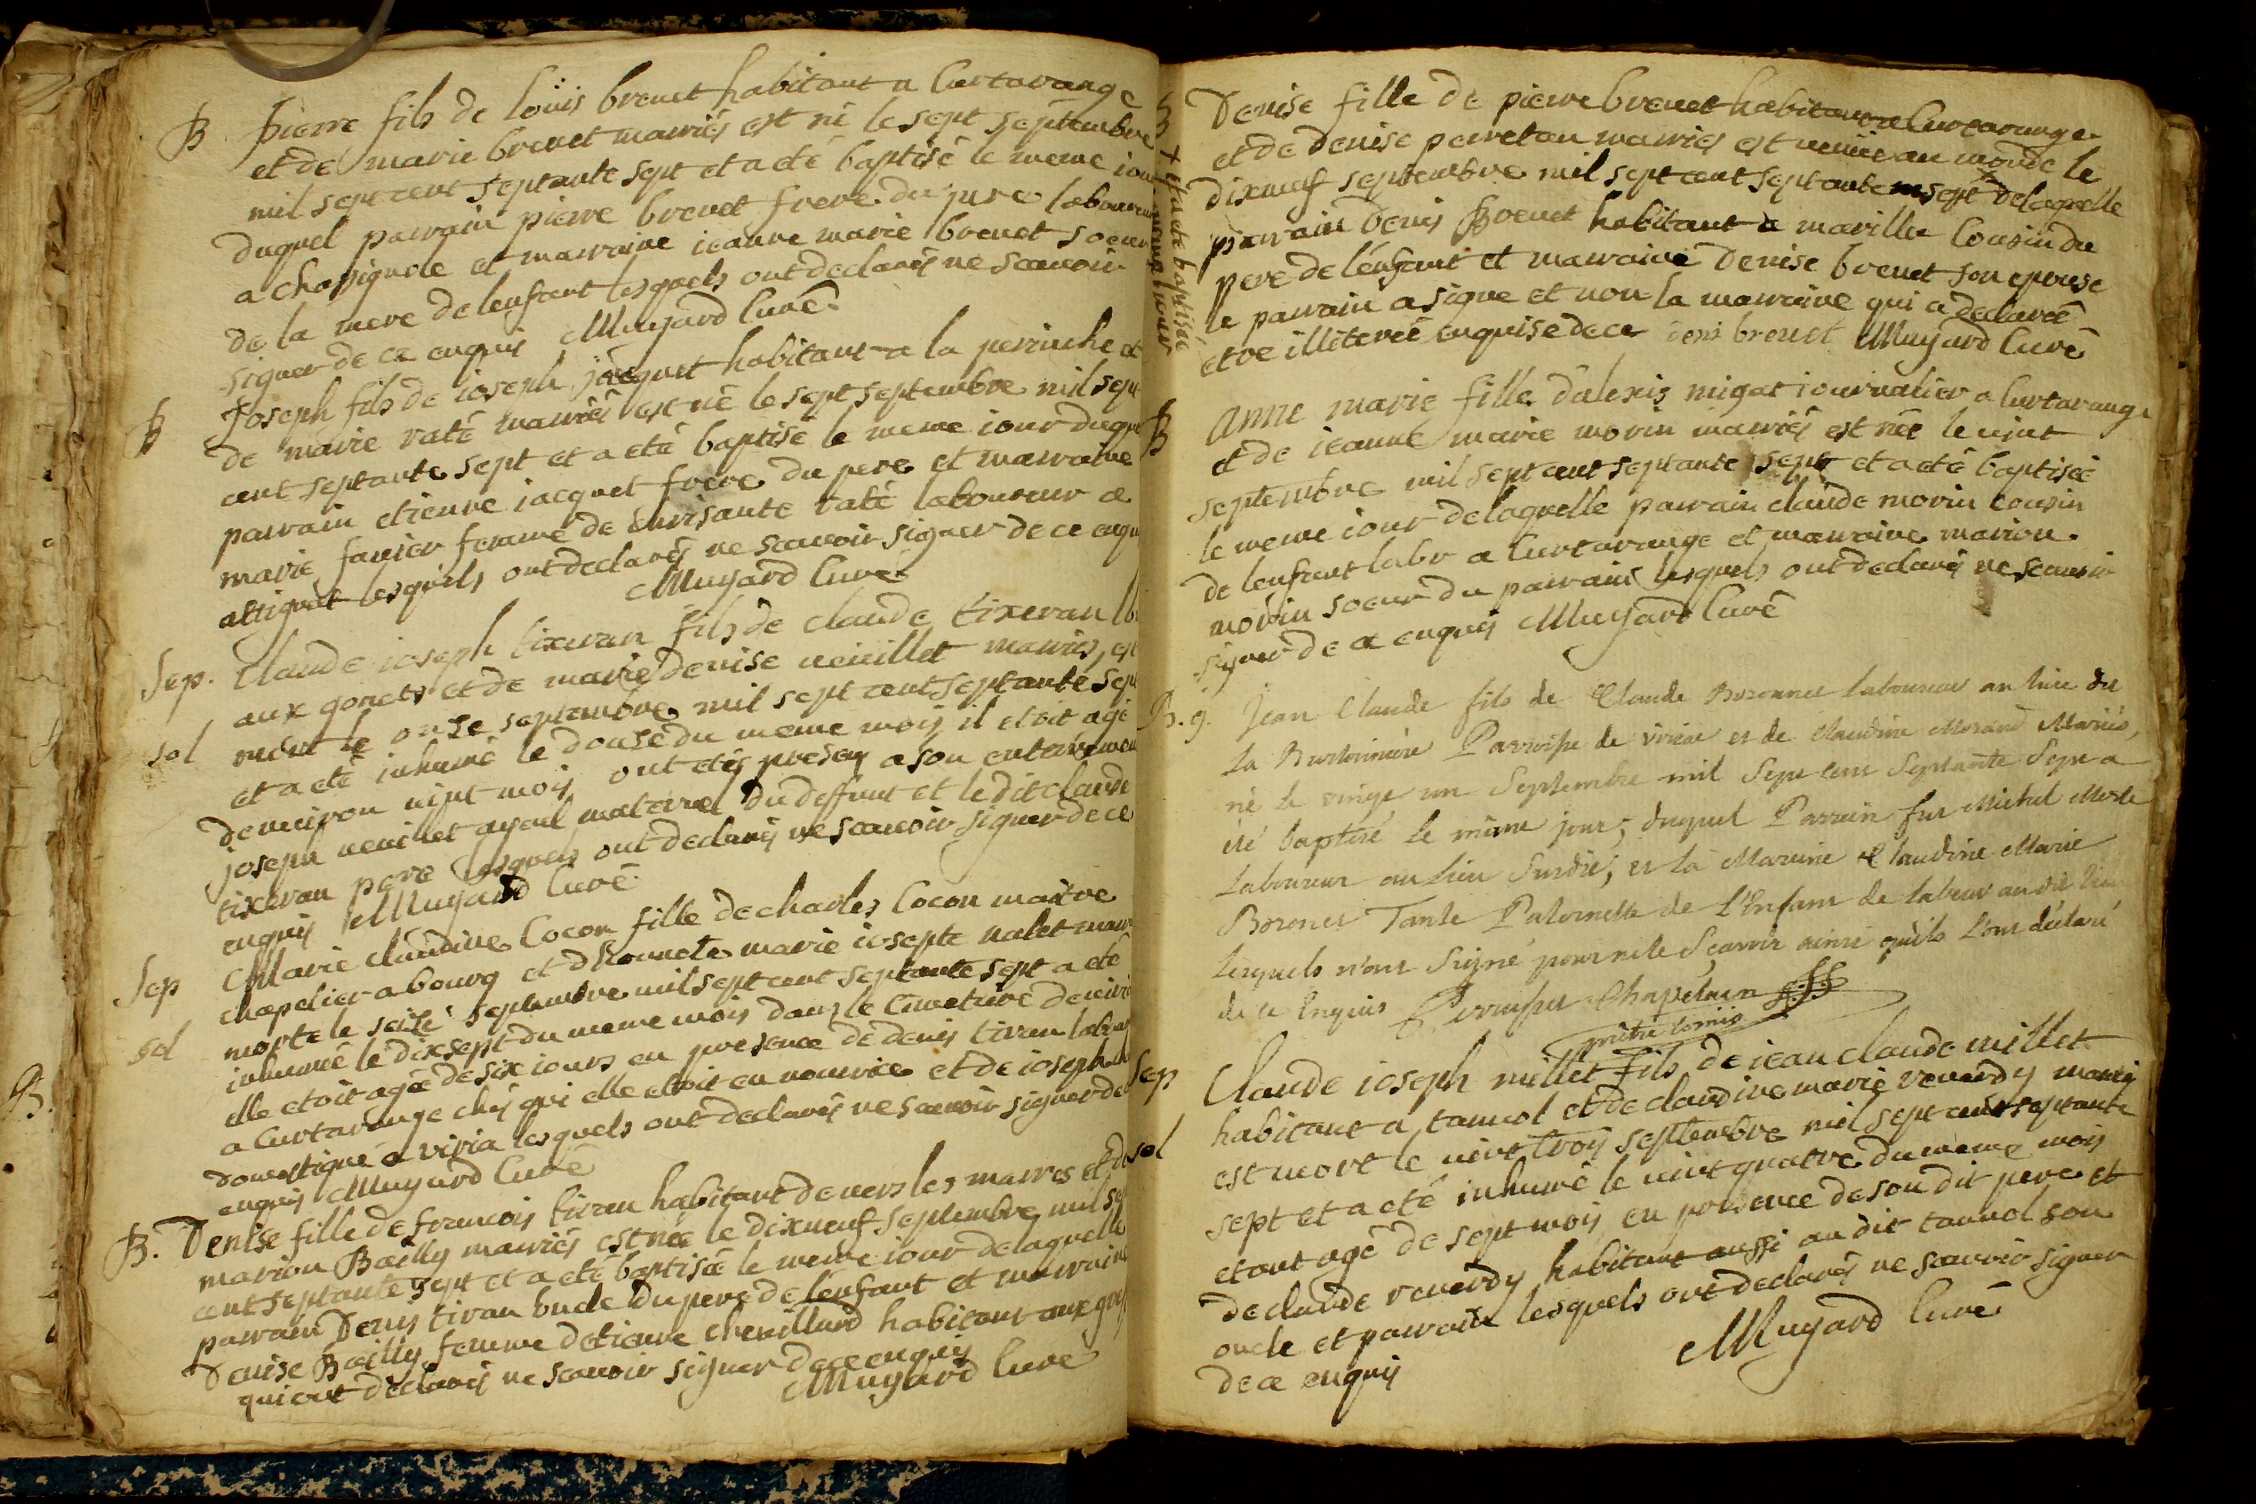 B Pierre fils de loüis brenet habitant a Curtarange
et de marie brenet mariés est né le sept septembre
mil sept cent septante sept et a eté baptisé le meme iour
duquel parrain pierre brenet frere du pere laboureur
a chapignole et marraine ieanne marie brenet soeur
de la mere de lenfant lesquels ont declarés ne scauoir
signer de ce enquis Muyard Curé
B Joseph fils de ioseph jacquet habitant a la perriche et
de marie raté mariés est né le sept septembre mil sept
cent septante sept et a eté baptisé le meme iour duquel
parrain etienne iacquet frere du pere et marraine
marie fanier femme de raté laboureur a
attignat lesquels ont declarés ne scauoir signer de ce enquis
Muyard Curé
Sep. Claude ioseph tixeran fils de claude tixeran
aux gonets et de marie denise neuillet mariés, est
sol mort le onze septembre mil sept cent septante sept
et a eté inhumé le douse du meme mois il etoit agé
denuiron uint mois ont etés presens a son enterrement
joseph neuillet ayeul maternel du deffunt et ledit claude
tixeran pere lesquels ont declarés ne scauoir signer de ce
enquis Muyard Curé
Sep Marie claudine Cocon fille de charles Cocon maitre
chapelier a bourg et dhonnete marie iosepte nalet mariés
morte le seize septembre mil sept cent septante sept a eté
sol inhumé le dixsept du meme mois dans le Cimetiere de uiria
elle etoit agée de six iours en presence de denis tiran labour
a Curtarange chés qui elle etoit en nourice et de ioseph
domestique a viria lesquels ont declarés ne scauoir signer de
enquis Muyard Curé
B. Denise fille de francois tiran habitant deuers les marres et de
marion Bailly mariés est née le dixneuf septembre mil sept
cent septante sept et a eté baptisée le meme iour delaquelle
parrain Denis tiran oncle du pere de lenfant et marraine
Denise Bailly femme detienne chenillard habitant aux
qui ont declarés ne scauoir signer de ce enquis
Muyard Curé
B Denise fille de pierre brenet habitant a Curtarange
et de denise perretan mariés est uenüe au monde le
dixneuf septembre mil sept cent septante sept + delaquelle
parrain Denis Brenet habitant a marillia Cousin du
pere de lenfant et marraine Denise brenet son epouse
le parrain a signé et non la marraine qui a declaré
etre illiterée enquise de ce denis brenet Muyard Curé
+ et a eté baptisée
le meme iour
B anne marie fille dalexis migat iournalier a Curtarange
et de ieanne marie morin mariés est née le uint
septembre mil sept cent septante sept et a eté baptisée
le meme iour delaquelle parrain claude morin Cousin
de lenfant labr a Curtarange et marraine marion
morin soeur du parrain lesquels ont declarés ne scauoir
signer de ce enquis Muyard Curé
B. g. Jean Claude fils de Claude Boronnet laboureur au lieu de
la Parroisse de viria et de Claudine Morand Mariés,
né le vingt un Septembre mil Sept cent Septante Sept a
été baptisé le même jour; duquel Parrain fut Michel Merle
laboureur au lieu Susdit; et la Marraine Claudine Marie
Boronet Tante Paternelle de l'Enfant de labeur au dit lieu
lesquels n'ont Signé pour ne le Scavoir ainsi qu'ils l'ont déclaré
de ce Enquis Chapelain
Sep Claude ioseph millet fils de iean claude millet
habitant a tannol et de claudine marie renerdy mariés
sol est mort le uint trois septembre mil sept cent septante
sept et a eté inhumé le uint quatre du meme mois
etant agé de sept mois en presence de son dit pere et
de claude renerdy habitant aussi au dit tannol son
oncle et parrain lesquels ont declarés ne scauoir signer
de ce enquis Muyard Curé